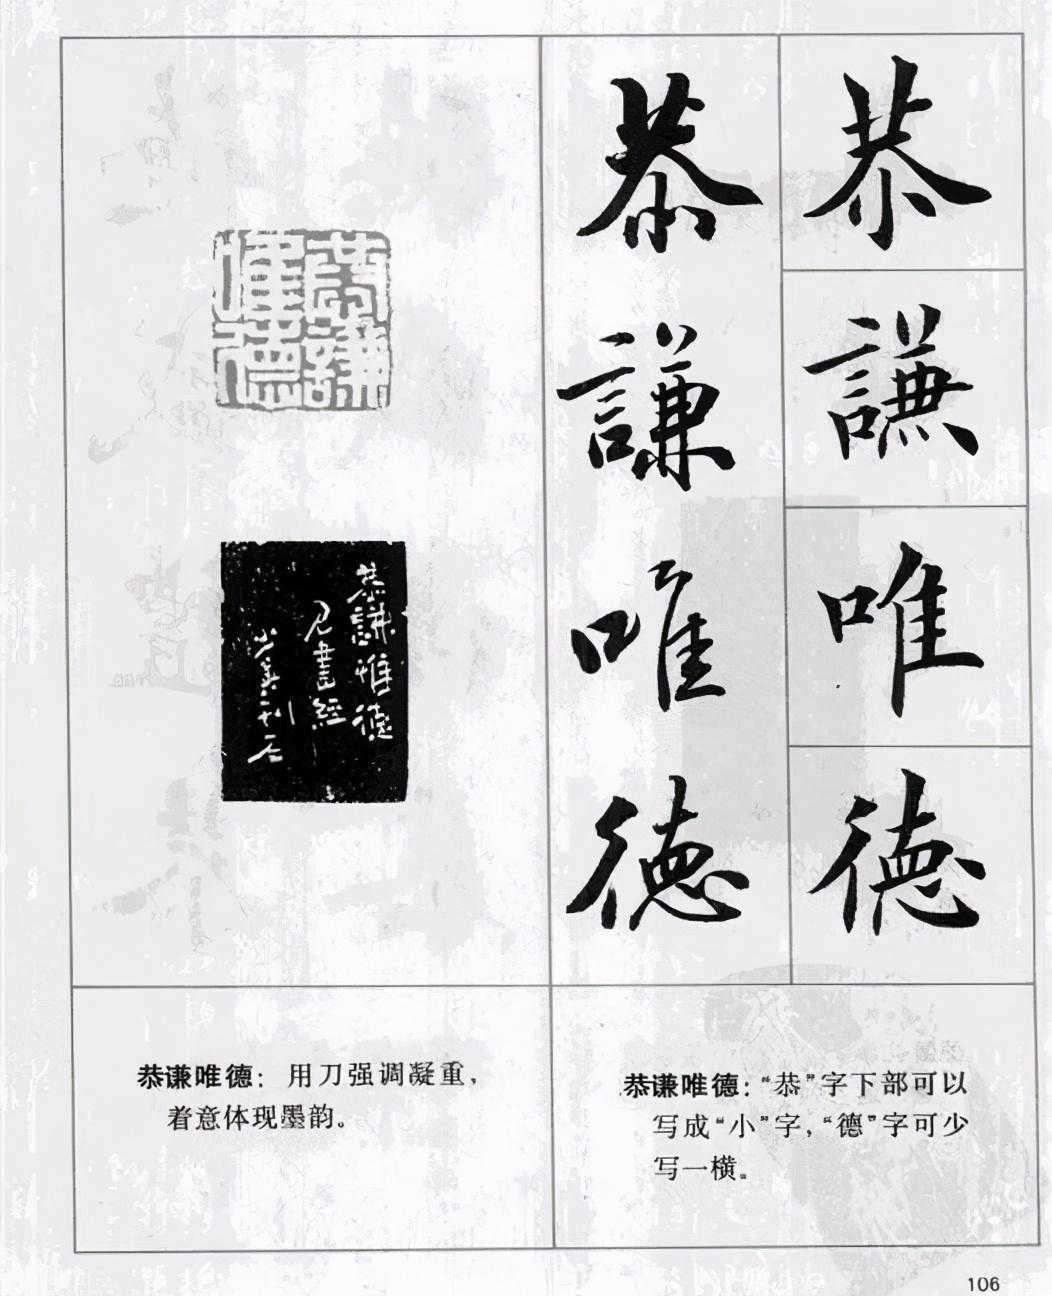 恭謙唯德
恭謙唯德
恭謙惟德
恭謙惟德
見書經
少眞刊石
恭谦唯德：用刀强调凝重，
着意体现墨韵。
恭谦唯德：“恭”字下部可以
写成“小”字，“德”字可少
写一横。
106